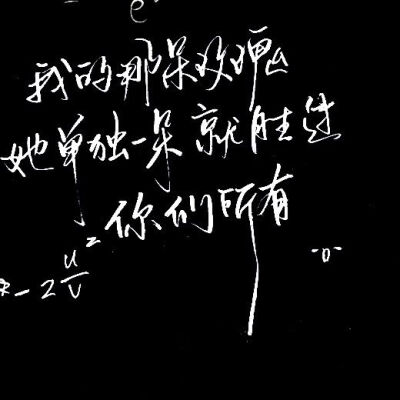 e
我的那朵玫瑰
她单独一朵就胜过
你们所有
- 2 u/v ²